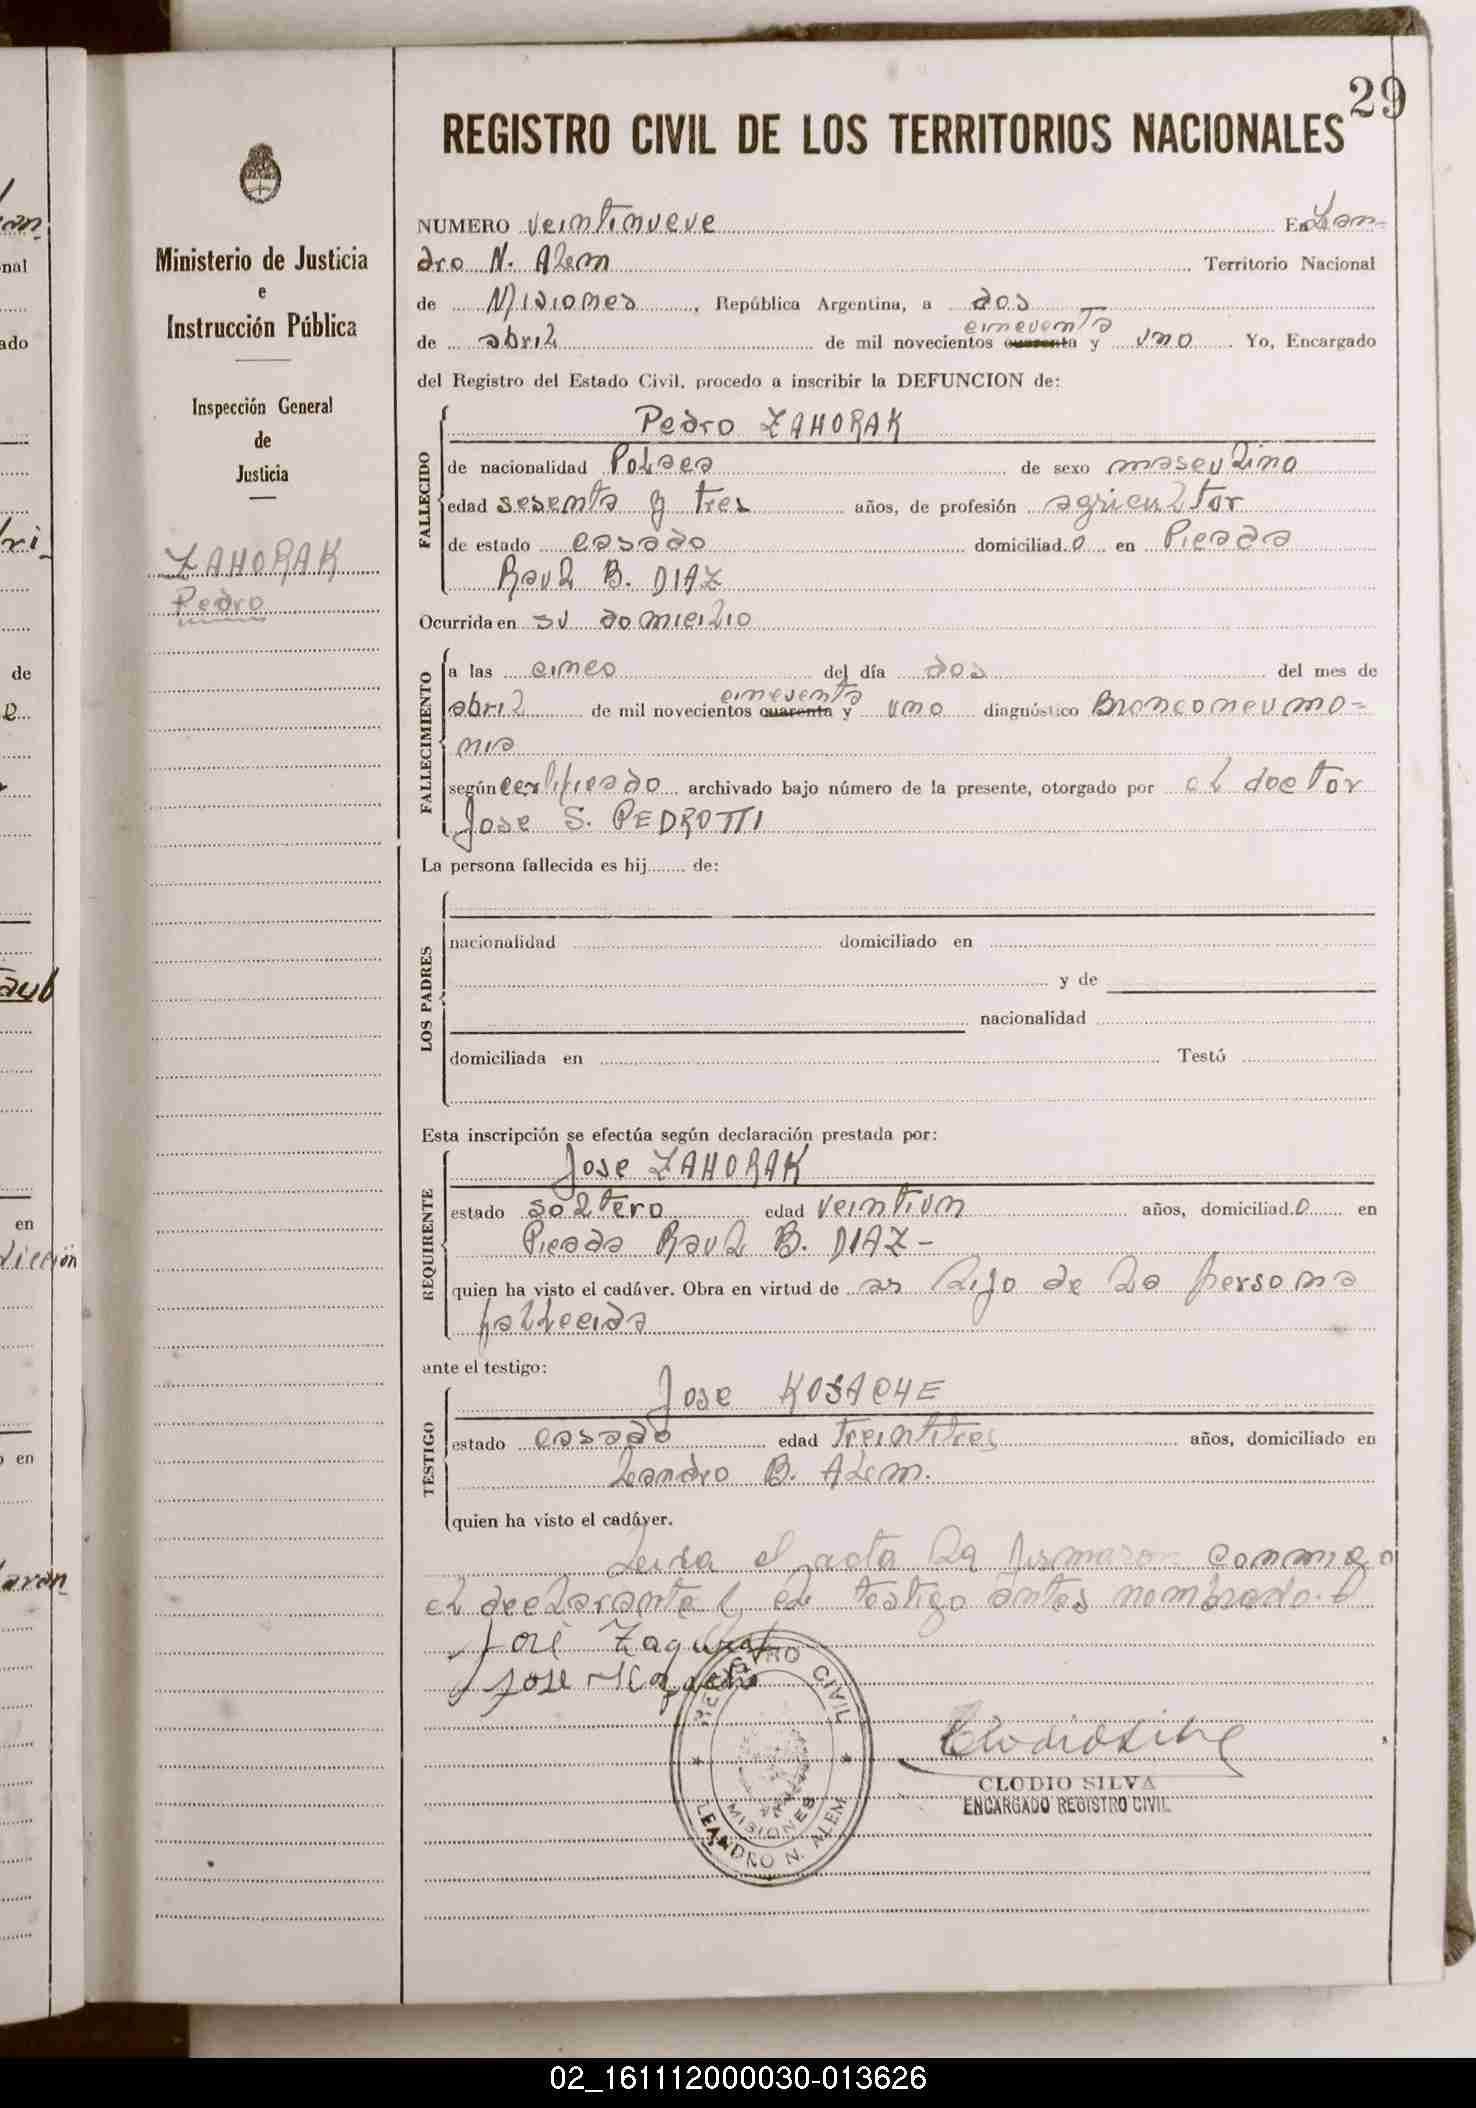 29
REGISTRO CIVIL DE LOS TERRITORIOS NACIONALES
Ministerio de Justicia
e
Instrucción Pública
Inspección General
de
Justicia
ZAHORAK
Pedro
NUMERO veintinueve En Lean-
dro N. Alem Territorio Nacional
de Misiones, República Argentina, a dos
cincuenta
de abril de mil novecientos cuarenta y uno. Yo, Encargado
del Registro del Estado Civil, procedo a inscribir la DEFUNCION de:
FALLECIDO
Pedro ZAHORAK
de nacionalidad Polaca de sexo masculino
edad sesenta y tres años, de profesión agricultor
de estado casado domiciliad.o en Picada
Raul B. DIAZ
Ocurrida en su domicilio
FALLECIMIENTO
a las cinco del día dos del mes de
cincuenta
abril de mil novecientos cuarenta y uno diagnóstico Bronconeumo-
nia
según certificado archivado bajo número de la presente, otorgado por el doctor
Jose S. PEDROTTI
La persona fallecida es hij........ de:
LOS PADRES
nacionalidad domiciliado en
y de
nacionalidad
domiciliada en Testó
Esta inscripción se efectúa según declaración prestada por:
REQUIRENTE
Jose ZAHORAK
estado soltero edad veintiun años, domiciliad.o en
Picada Raul B. DIAZ-
quien ha visto el cadáver. Obra en virtud de hijo de la persona
fallecida
ante el testigo:
TESTIGO
Jose KOSACHE
estado casado edad treintitres años, domiciliado en
Leandro B. Alem.
quien ha visto el cadáver.
Leida el acta la firmaron conmigo
el declarante y el testigo antes nombrado.
José
Jose
REGISTRO CIVIL
MISIONES
LEANDRO N. ALEM
CLODIO SILVA
ENCARGADO REGISTRO CIVIL
02_161112000030-013626